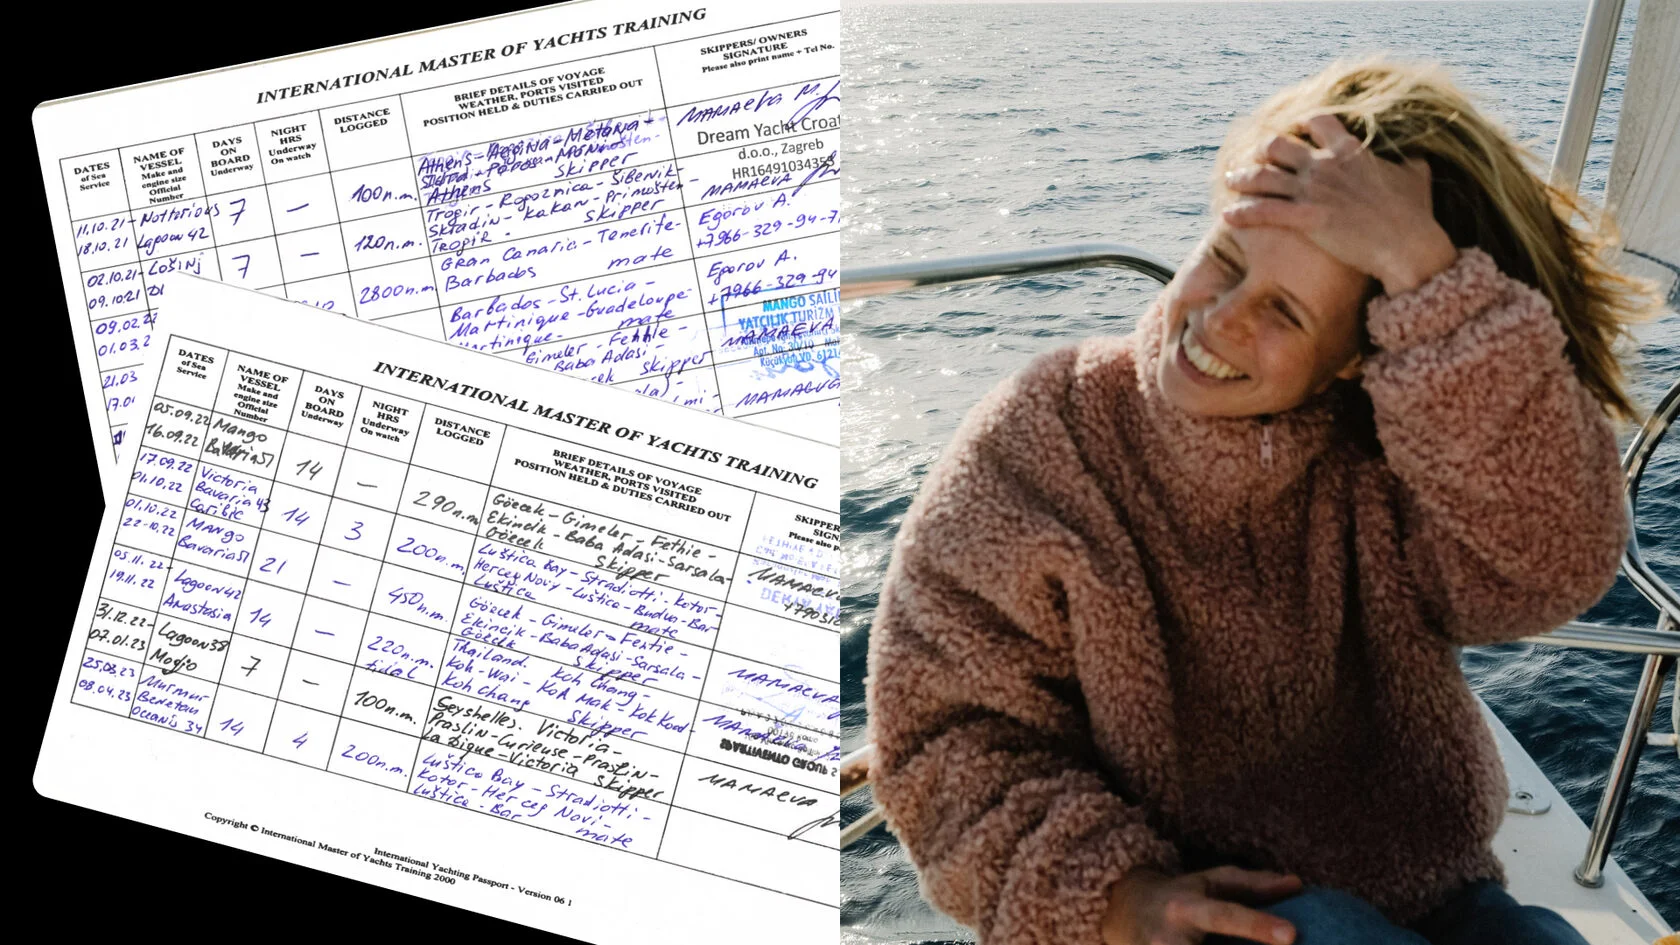 INTERNATIONAL MASTER OF YACHTS TRAINING
DATES
of Sea
Service
NAME OF
VESSEL
Make and
engine size
Official
Number
DAYS
ON
BOARD
Underway
NIGHT
HRS
Underway
On watch
DISTANCE
LOGGED
BRIEF DETAILS OF VOYAGE
WEATHER, PORTS VISITED
POSITION HELD & DUTIES CARRIED OUT
SKIPPERS/ OWNERS
SIGNATURE
Please also print name + Tel No.
11.10.21-
18.10.21
Nottorious
Lagoon 42
7
—
100n.m.
Athens-Agina-Metana-
Athens
Skipper
MAMAEVA M.
Dream Yacht Croat
d.o.o., Zagreb
02.10.21-
09.10.21
LOŠINJ
7
—
120n.m.
Trogir-Rogoznica-Šibenik-
Skradin-Kakan-Primošten-
Trogir -
Skipper
MAMAEVA
09.02.22
01.03.2
2800n.m.
Gran Canaria-Tenerife-
Barbados
mate
Egorov A.
Barbados-St.Lucia-
Martinique-Guadeloupe-
Martinique-
mate
Egorov A.
21.03
17.0
Gimeler-Fethie-
Baba Adasi
skipper
MANGO SAILI
YATÇILIK TURİZM
MAMAEVA
INTERNATIONAL MASTER OF YACHTS TRAINING
DATES
of Sea
Service
NAME OF
VESSEL
Make and
engine size
Official
Number
DAYS
ON
BOARD
Underway
NIGHT
HRS
Underway
On watch
DISTANCE
LOGGED
BRIEF DETAILS OF VOYAGE
WEATHER, PORTS VISITED
POSITION HELD & DUTIES CARRIED OUT
SKIPP
SIGN
Please also p
05.09.22
16.09.22
Mango
Bavaria51
14
—
290n.m.
Göecek-Gimeler-Fethie-
Ekincik-Baba Adasi-Sarsala-
Göecek
Skipper
MAMAEV
17.09.22
01.10.22
Victoria
Bavaria 43
Caribic
14
3
200n.m.
Luštica Bay-Stradiotti-Kotor-
Herceg Novy-Luštica-Budva-Bar-
Luštica
mate
01.10.22
22.10.22
MANGO
Bavaria51
21
—
450n.m.
Göecek-Gimeler-Fentie-
Ekincik-Baba Adasi-Sarsala-
Göecek
Skipper
MAMAEVA
05.11.22-
19.11.22
Lagoon42
Anastasia
14
—
220n.m.
tidal
Thailand. Koh Chang-
Koh-Wai-Koh Mak-Kok Kood-
Koh chang
Skipper
31.12.22-
07.01.23
Lagoon38
Mojio
7
—
100n.m.
Seyshelles. Victoria-
Praslin-Curieuse-Praslin-
La Digue-Victoria
Skipper
MAMAEVA
25.03.23
08.04.23
Murmur
Benetau
Oceanis 34
14
4
200n.m.
Luštica Bay-Stradiotti-
Kotor-Herceg Novi-
Luštica-Bar
mate
International Yachting Passport - Version 06 1
Copyright © International Master of Yachts Training 2000